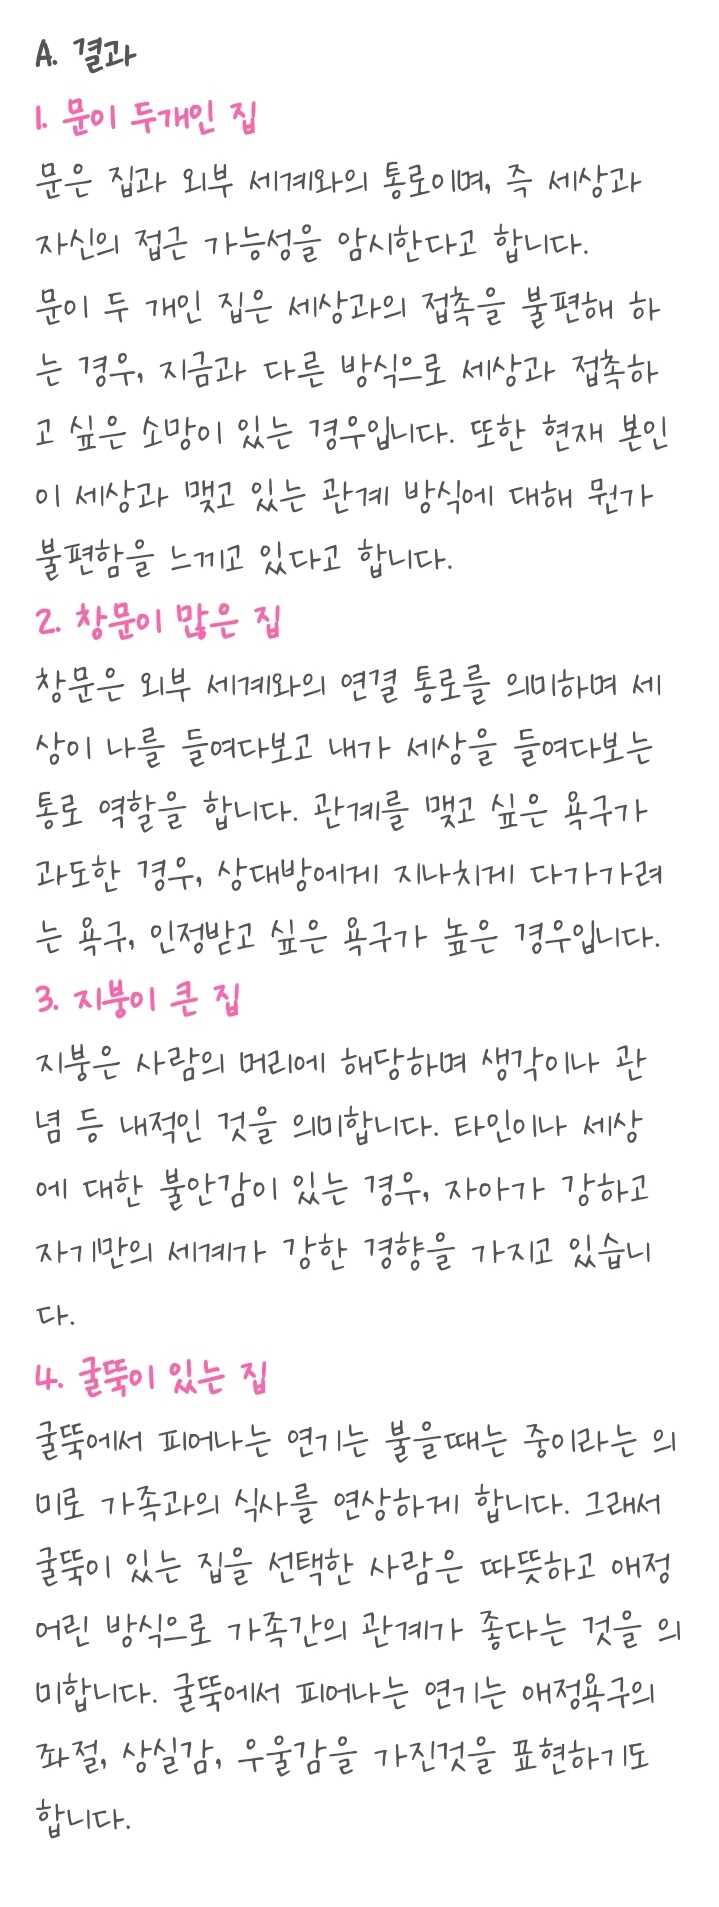 A. 결과
1. 문이 두개인 집
문은 집과 외부 세계와의 통로이며, 즉 세상과
자신의 접근 가능성을 암시한다고 합니다.
문이 두 개인 집은 세상과의 접촉을 불편해 하
는 경우, 지금과 다른 방식으로 세상과 접촉하
고 싶은 소망이 있는 경우입니다. 또한 현재 본인
이 세상과 맺고 있는 관계 방식에 대해 뭔가
불편함을 느끼고 있다고 합니다.
2. 창문이 많은 집
창문은 외부 세계와의 연결 통로를 의미하며 세
상이 나를 들여다보고 내가 세상을 들여다보는
통로 역할을 합니다. 관계를 맺고 싶은 욕구가
과도한 경우, 상대방에게 지나치게 다가가려
는 욕구, 인정받고 싶은 욕구가 높은 경우입니다.
3. 지붕이 큰 집
지붕은 사람의 머리에 해당하며 생각이나 관
념 등 내적인 것을 의미합니다. 타인이나 세상
에 대한 불안감이 있는 경우, 자아가 강하고
자기만의 세계가 강한 경향을 가지고 있습니
다.
4. 굴뚝이 있는 집
굴뚝에서 피어나는 연기는 불을때는 중이라는 의
미로 가족과의 식사를 연상하게 합니다. 그래서
굴뚝이 있는 집을 선택한 사람은 따뜻하고 애정
어린 방식으로 가족간의 관계가 좋다는 것을 의
미합니다. 굴뚝에서 피어나는 연기는 애정욕구의
좌절, 상실감, 우울감을 가진것을 표현하기도
합니다.